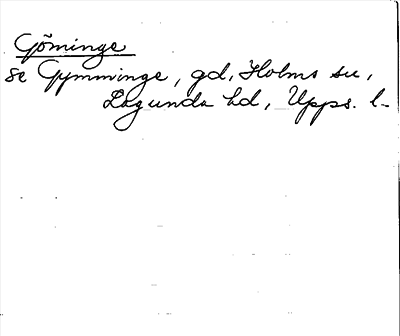 Göminge
se Gymminge, gd, Holms sn,
Lagunda hd, Upps. l-